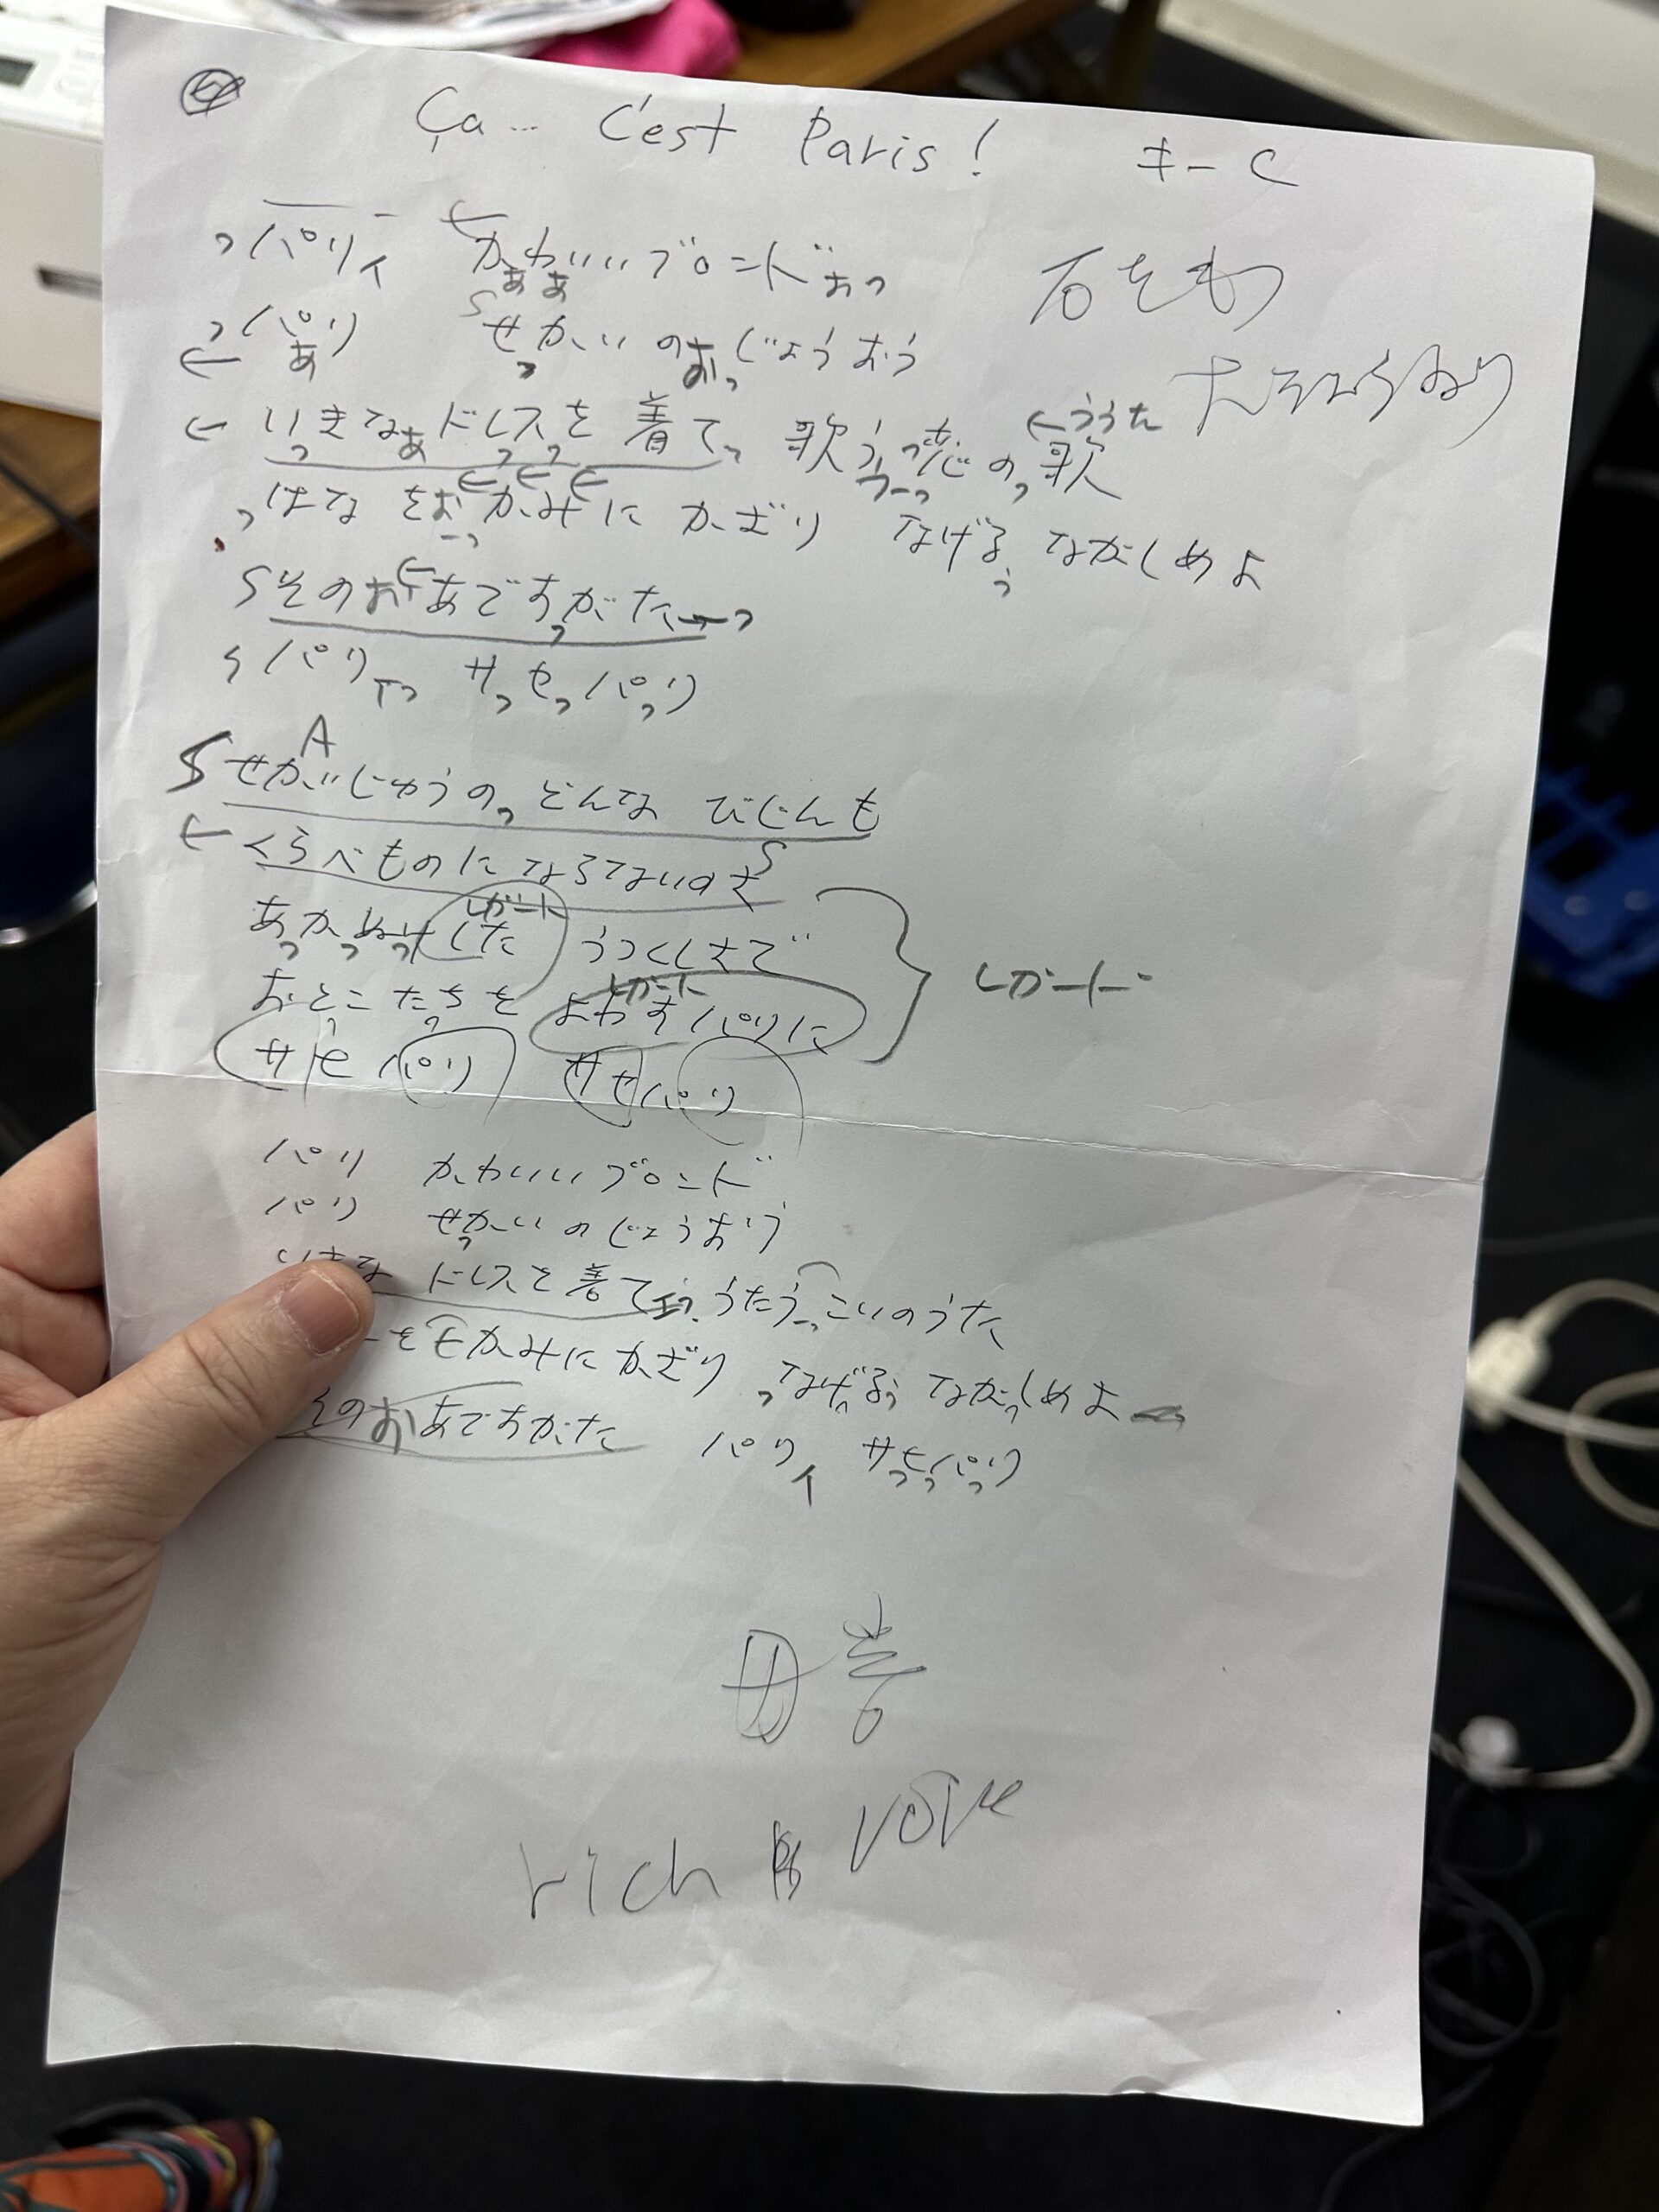 ④ Ça… C'est Paris! キーC
っパリィ かわいいブロンドぉっ
ああ
っパリ せかいのおっじょうおう
あ っ
いっきなあドレスを着てっ 歌うっ恋のっ歌
←ううた
っはなをおかみにかざり なげるぅ ながしめよ
Sそのおあですがたーっ
パリィっ サっセっパっリ
A
Sせかいじゅうのっどんな びじんも
←くらべものにならないのさ
S
あっかっぬっけした うつくしさで
レガート
おとこたちを よわすパリに
レガート
レガート
サセパリ サセパリ
パリ かわいいブロンド
パリ せかいのじょうおう
いきな ドレスを着て うたうーっこいのうた
ーをもかみにかざり っなげるぅ ながしめよ
そのおあですがた パリィ サっセっパっリ
母音
rich voice